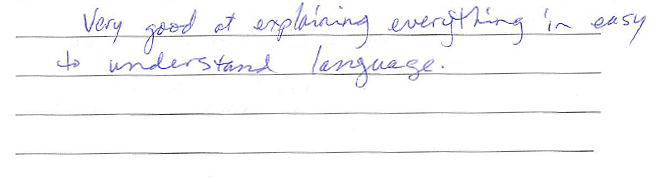 Very good at explaining everything in easy
to understand language.